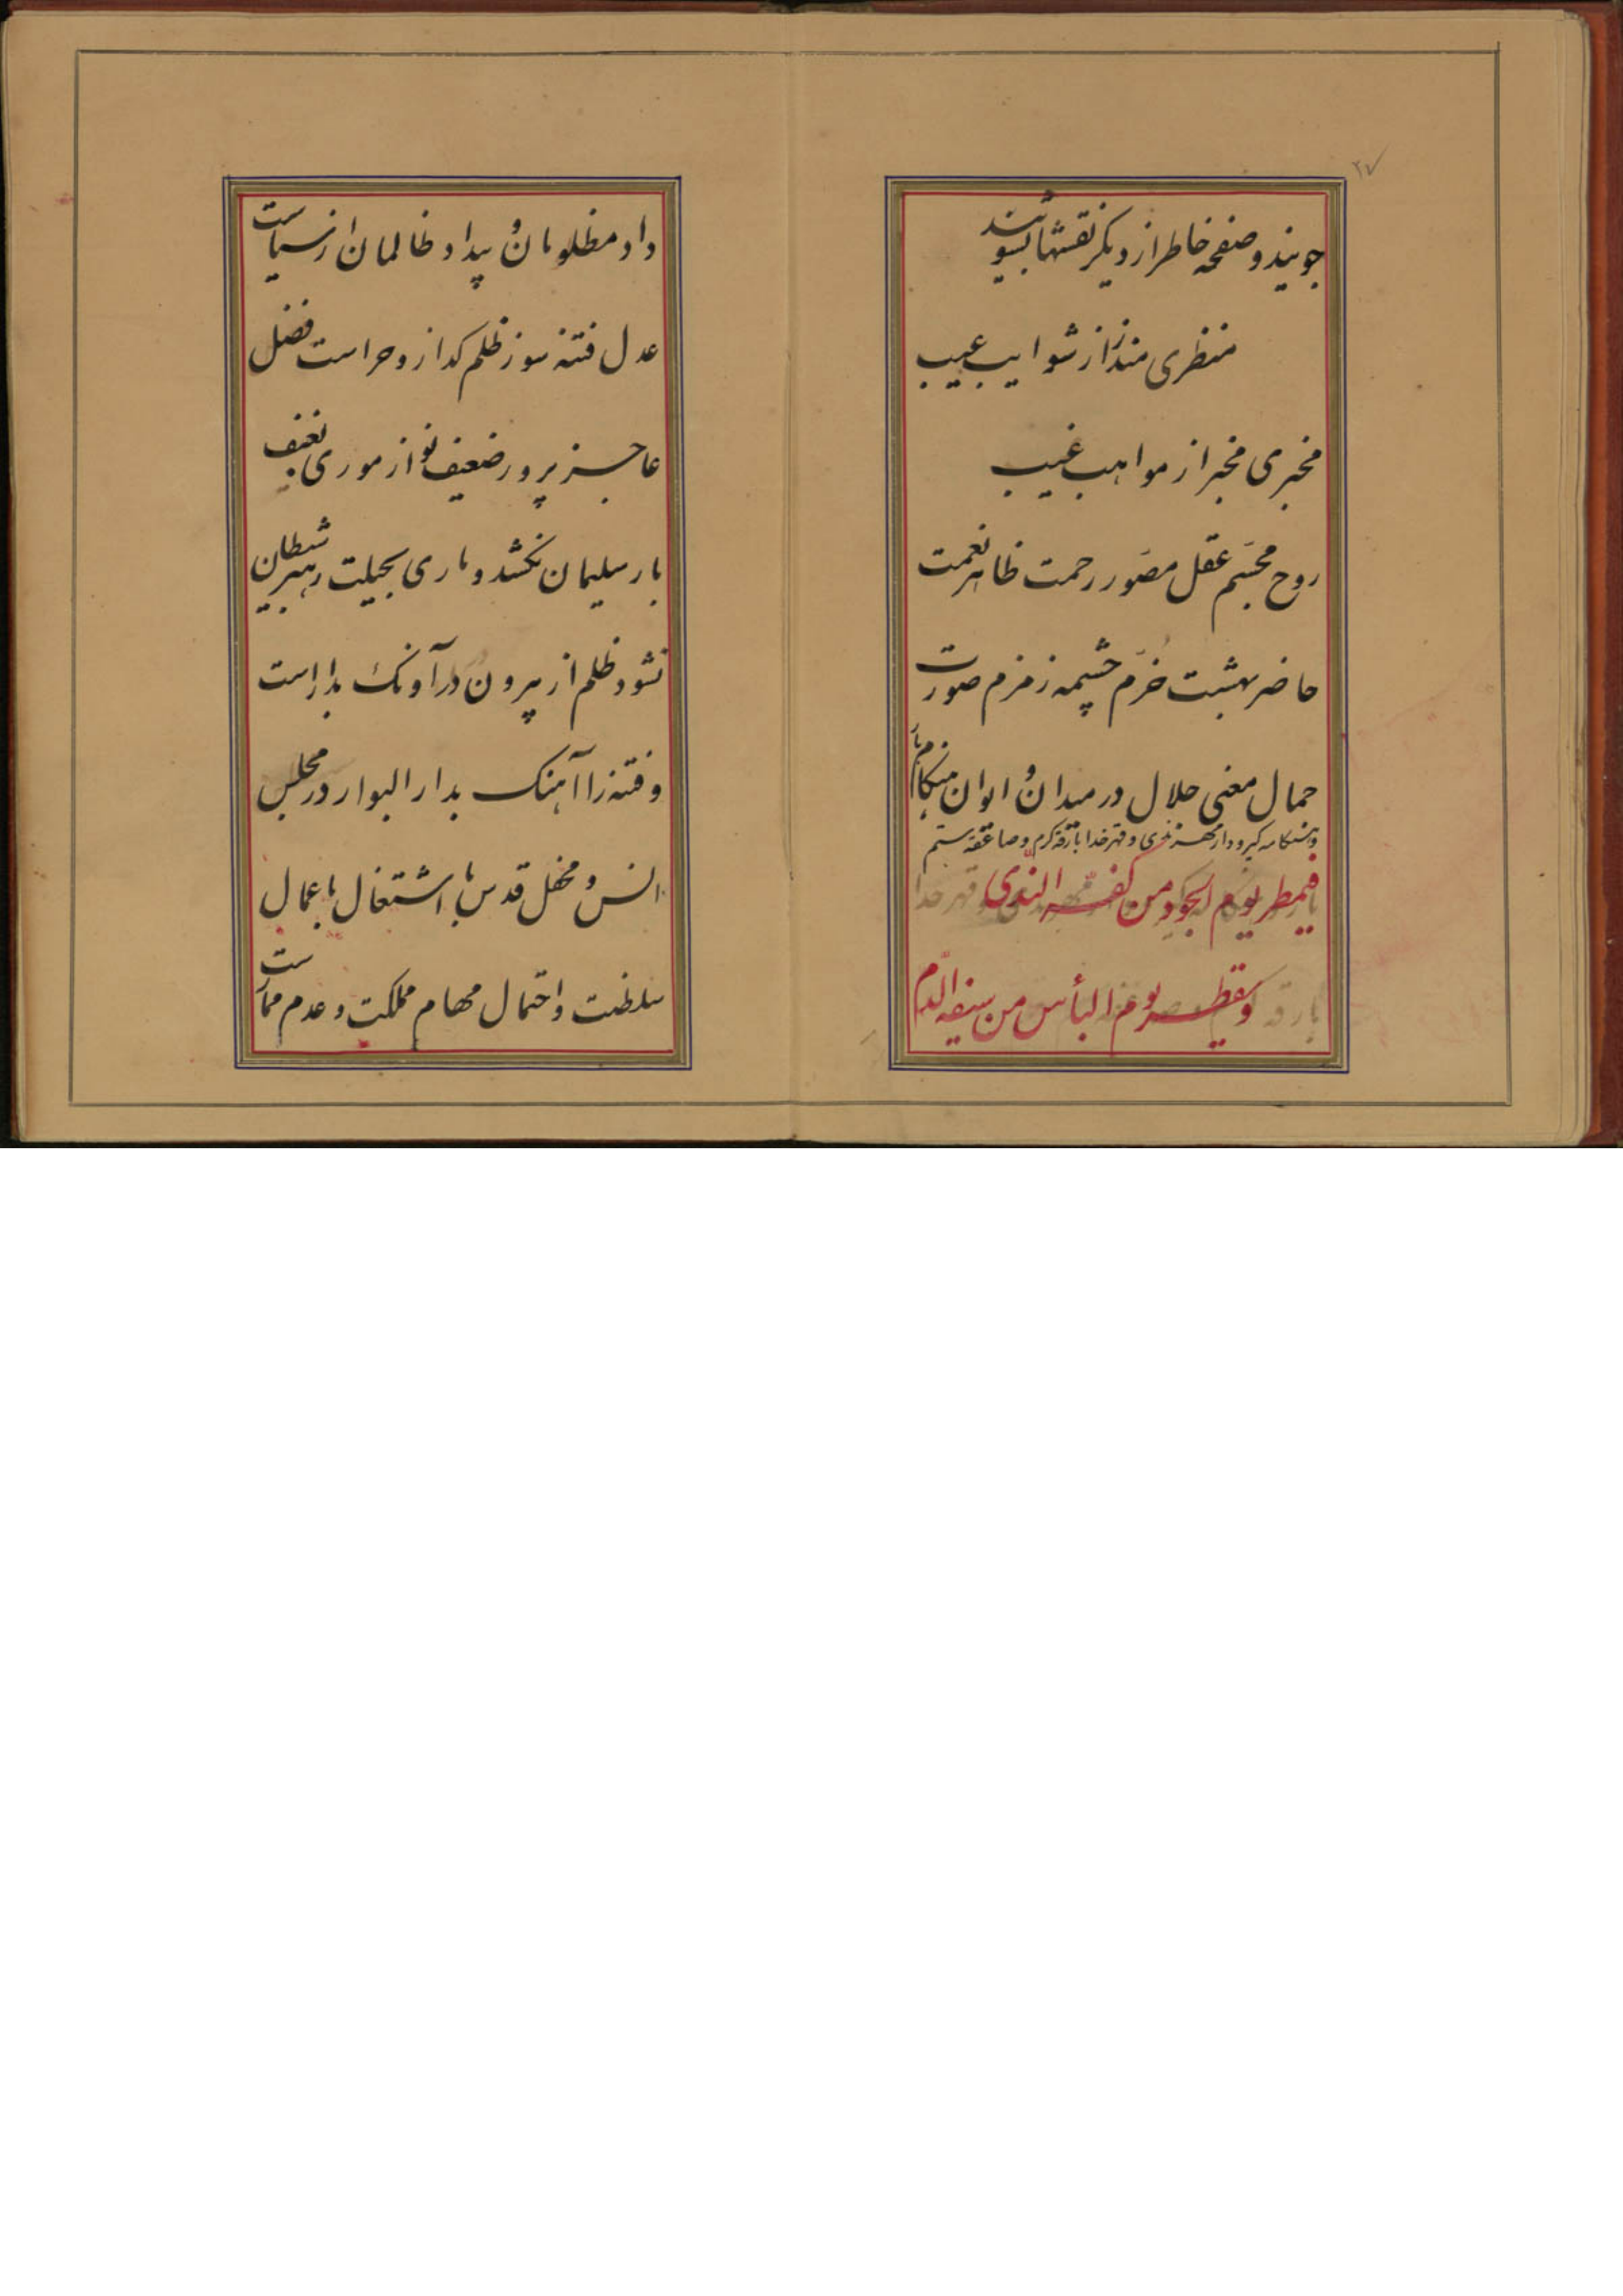 ۲۷
جویند و صفحه خاطر از دیگر نقشها بشویند
منظری منذر از شوایب عیب
مخبری مخبر از مواهب غیب
روح مجسّم عقل مصوّر رحمت ظاهر نعمت
حاضر بهشت خرّم چشمه زمزم صورت
جمال معنی جلال در میدان و ایوان هنگام بار
و هنگامه گیر و دار و قهر خدا بارقه کرم و صاعقه ستم
فیمطر یوم الجود من کفه الندّی
و یقطر یوم البأس من سیفه الدّم
داد مظلومان و بیداد ظالمان از سیاست
عدل فتنه سوز ظلم کداز و حراست فضل
عاجز پرور ضعیف نواز موری بعنف
بار سلیمان نکشد و ماری بحیلت رهبر شیطان
نشود ظلم از بیرون در آونک بدار است
و فتنه را آهنک بدار البوار در مجلس
انس و محفل قدس با اشتغال باعمال
سلطنت و احتمال مهام مملکت و عدم ممارست